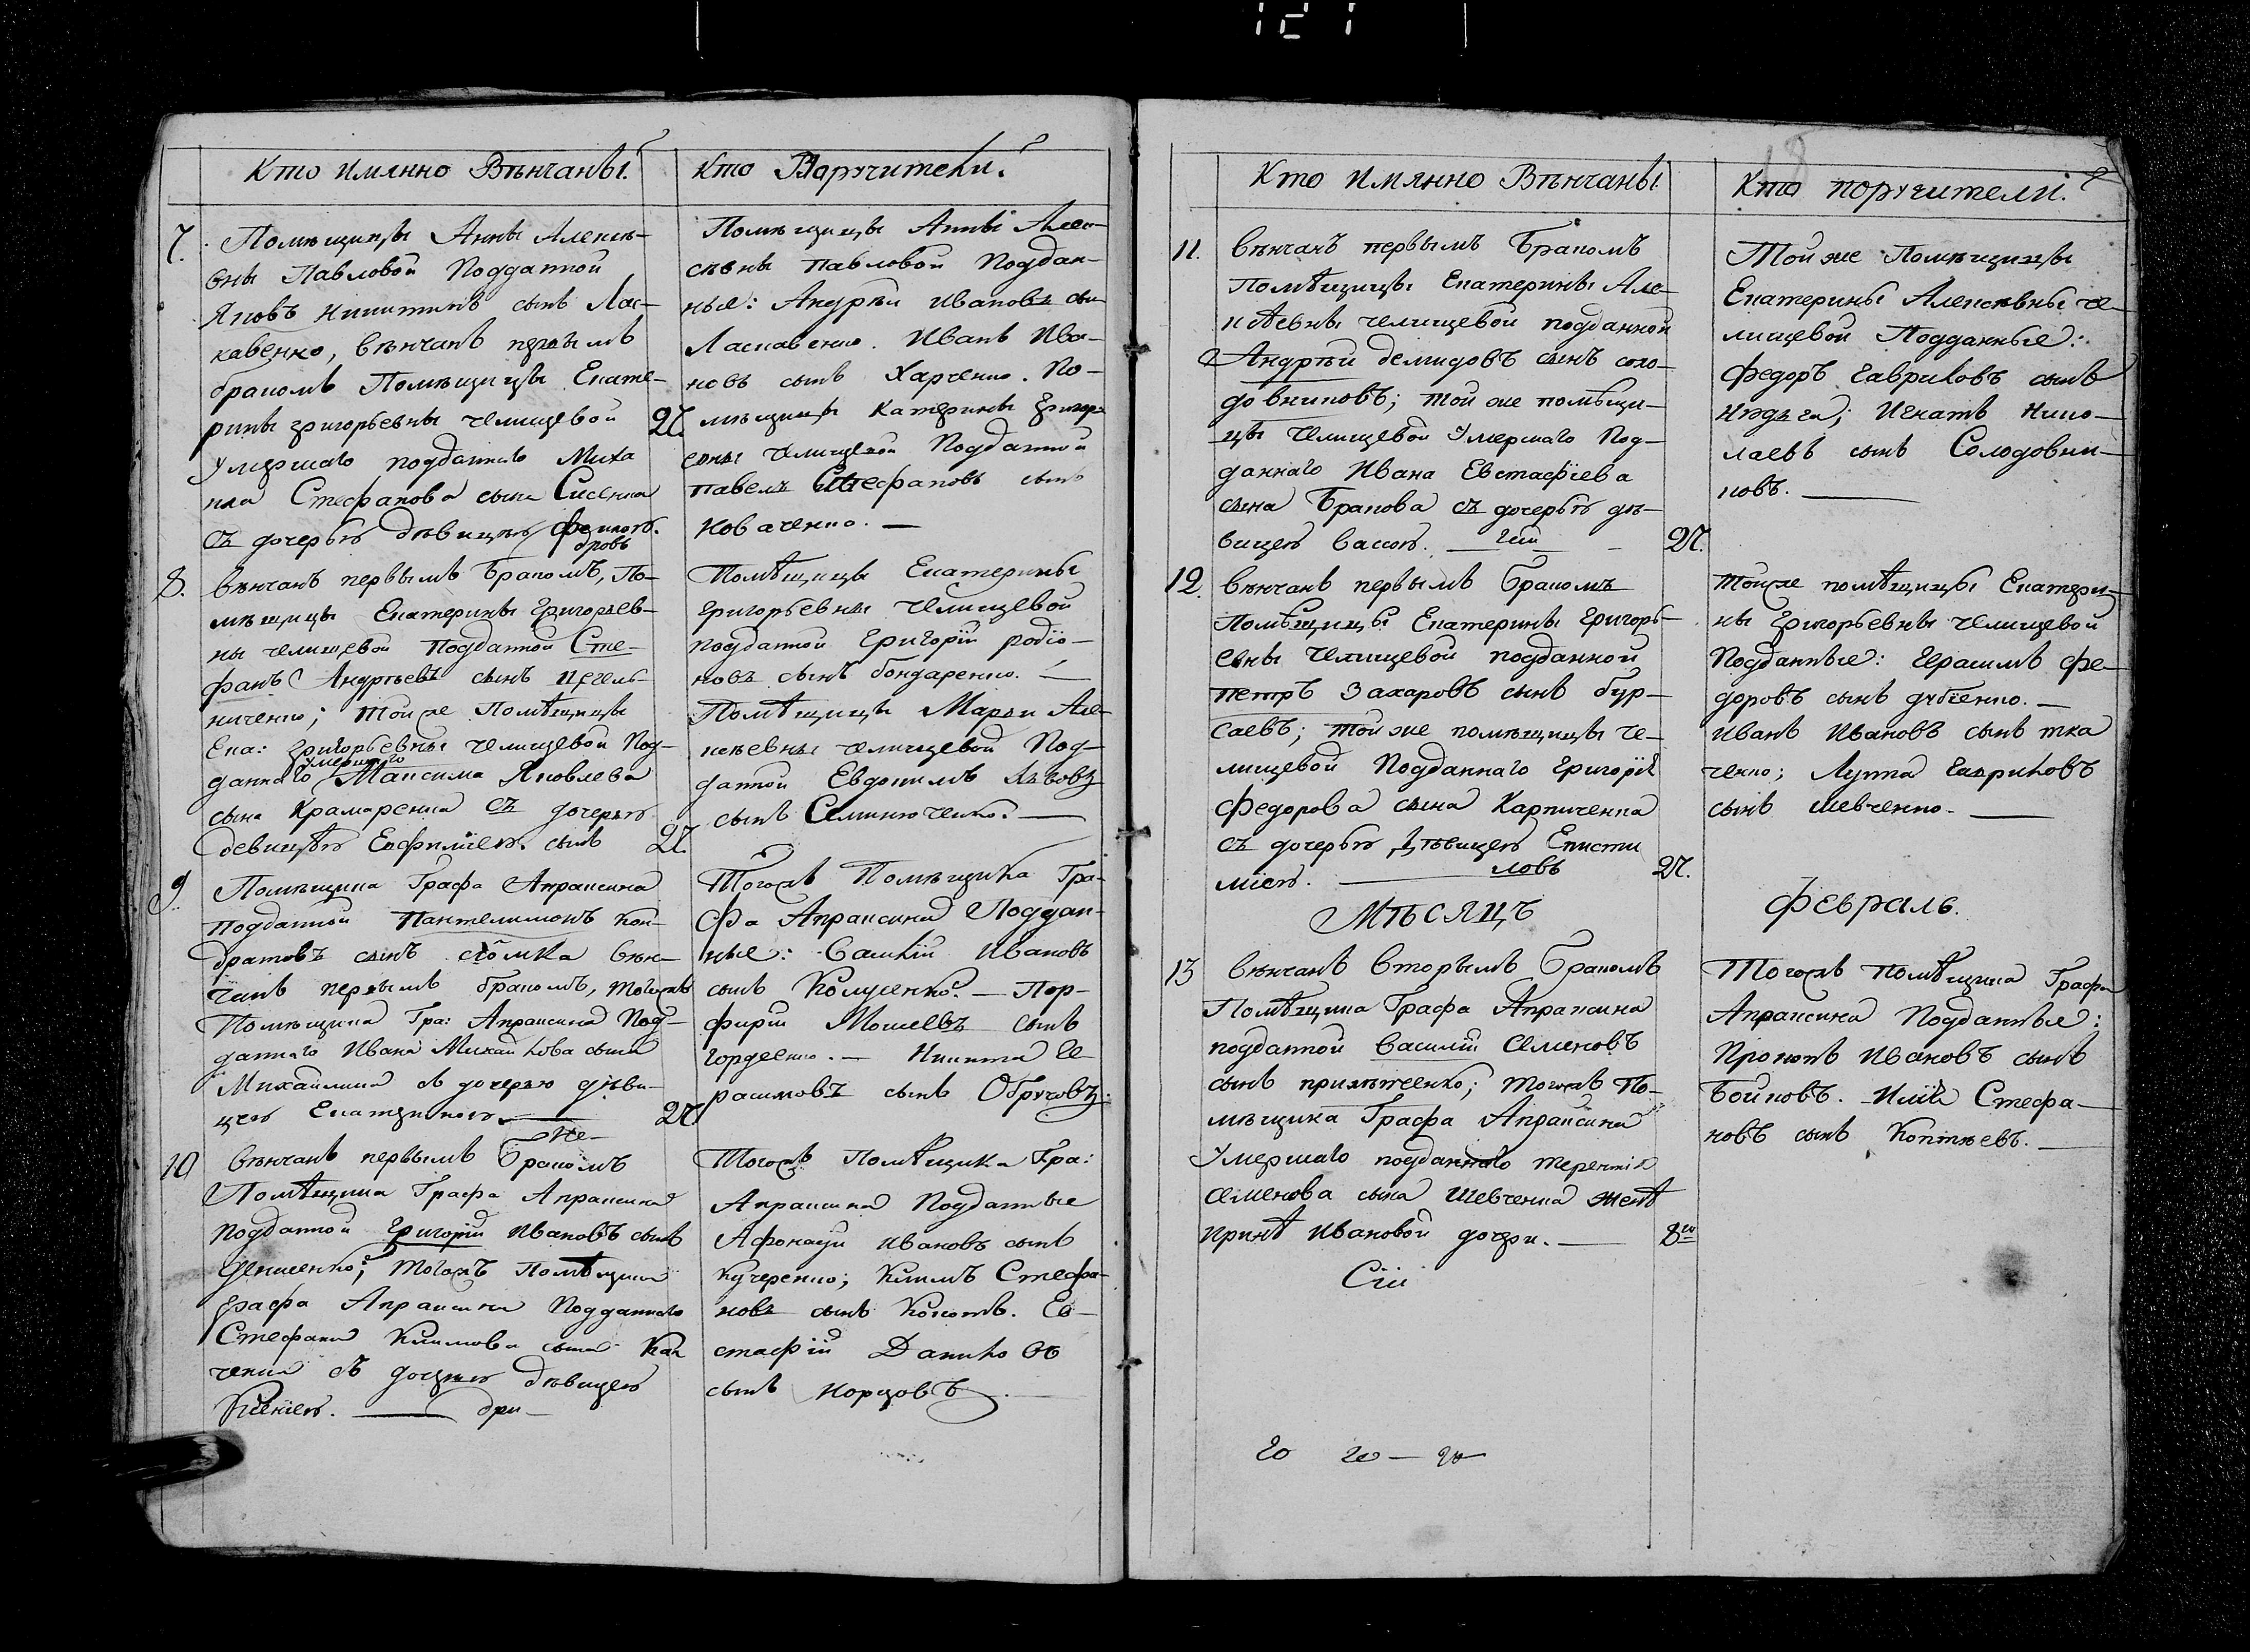 121
Кто имянно Вѣнчаны.
Кто Поручители.
7.
Помѣщицы Анны Алексѣ-
вны Павловой Подданной
Яковъ Никитинъ сынъ Лас-
кавенко, вѣнчанъ первымъ
бракомъ Помѣщицы Екате-
рины Григорьевны Челищевой
27.
умершаго подданнаго Миха
Стефанова сына
съ дочерью дѣвицею
Помѣщицы Анны Алек-
сѣвны Павловой Поддан-
ные: Андрѣй Ивановъ сы
Ласкавенко. Иванъ Ива-
новъ сынъ Харченко. По-
мѣщицы Катерины Григорь
евны Челищевой Подданной
Павелъ Стефановъ сынъ
Коваченко. —
8.
вѣнчанъ первымъ Бракомъ, По-
мѣщицы Екатерины Григорьев-
ны Челищевой Подданной Сте-
фанъ Андрѣевъ сынъ
ниченко; тойже Помѣщицы
Ека: Григорьевны Челищевой Под-
умершаго
даннаго Максима Яковлева
сына Крамаренка съ дочерью
девицею Евфиміею. сынъ
27.
Помѣщицы Екатерины
Григорьевны Челищевой
подданной Григорій родіо-
новъ сынъ бондаренко. —
Помѣщицы Марьи Але-
ксѣевны Челищевой Под-
данной Евдокимъ
сынъ —
9.
Помѣщика Графа Апраксина
подданной Пантелимонъ Кон-
дратовъ сынъ сіомка вѣн-
чанъ первымъ бракомъ, тогожъ
Помѣщика Гра: Апраксина Под-
даннаго Ивана Михайлова сына
Михайлика съ дочерью дѣви-
цею Екатериною. —
27.
Тогожъ Помѣщика Гра-
фа Апраксина Поддан-
ные: Ивановъ
сынъ — Пор-
фирій Моисеевъ сынъ
гордеенко. — Никита Ге
расимовъ сынъ Обручовъ.
10
вѣнчанъ первымъ Бракомъ
Помѣщика Графа Апраксина
подданной Григорій Ивановъ сынъ
Денисенко; тогожъ Помѣщика
Графа Апраксина Подданнаго
Стефана Климова сына
съ дочерью дѣвицею
Ксеніею. —
Тогожъ Помѣщика Гра:
Апраксина Подданные
Афонасій Ивановъ сынъ
кучеренко; Климъ Стефа-
новъ сынъ Ев-
стафій Данило въ
сынъ
18
Кто имянно Вѣнчаны
Кто поручители.
11.
вѣнчанъ первымъ Бракомъ
Помѣщицы Екатерины Але-
ксѣевны Челищевой подданной
Андрѣй демидовъ сынъ соло-
довниковъ; той же помѣщи-
цы Челищевой Умершаго Под-
даннаго Ивана Евстафіева
сына Бракова съ дочерью дѣ-
вицею —
27.
Той же Помѣщицы
Екатерины Алексѣвны Че-
лищевой Подданные:
Федоръ Гавриловъ сынъ
Игнатъ Нико-
лаевъ сынъ Солодовни-
ковъ. —
12.
вѣнчанъ первымъ бракомъ
Помѣщицы Екатерины Григорь-
евны Челищевой подданной
Петръ Захаровъ сынъ бур-
саевъ; той же помѣщицы Че-
лищевой Подданнаго Григорія
Федорова сына Карпиченка
съ дочерью дѣвицею Еписти
ловъ
міею. —
27.
тойже помѣщицы Екатери-
ны Григорьевны Челищевой
Подданные: Герасимъ Фе-
доровъ сынъ дубенко. —
Иванъ Ивановъ сынъ тка
ченко; Лупта Гавриловъ
сынъ Шевченко. —
Мѣсяцъ
февраль.
13
вѣнчанъ вторымъ Бракомъ
Помѣщика Графа Апраксина
подданной Василій Семеновъ
сынъ тогожъ По-
мѣщика Графа Апраксина
Умершаго подданнаго терентія
Семенова сына Шевченка женѣ
Иринѣ Ивановой дочери. —
8го
Сіи
Тогожъ Помѣщика Графа
Апраксина Подданные:
Прокопъ Ивановъ сынъ
Бойковъ. Илія Стефа-
новъ сынъ Коптѣевъ. —